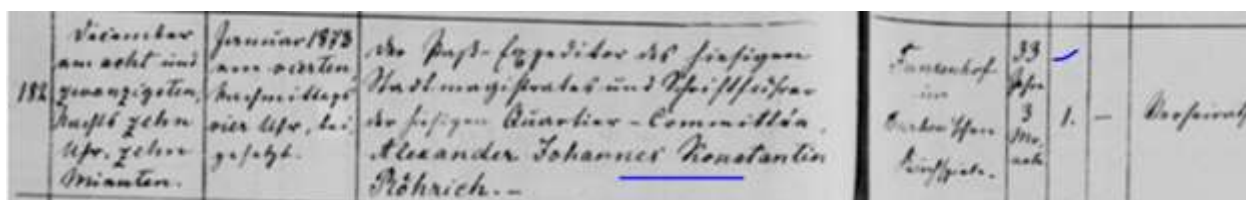 182
December
am acht und
zwanzigsten,
Nachts zehn
Uhr, zehn
Minuten.
Januar 1873
am vierten,
Nachmittags
vier Uhr, bei
gesetzt.
der Paß-Expeditor des hiesigen
Stadtmagistrates und Schriftführer
der hiesigen Quartier-Committée,
Alexander Johannes Konstantin
Röhrich.-
im
Kirchspiele.
33
Jahre
3
Mo-
nate
1.
–
Verheirath